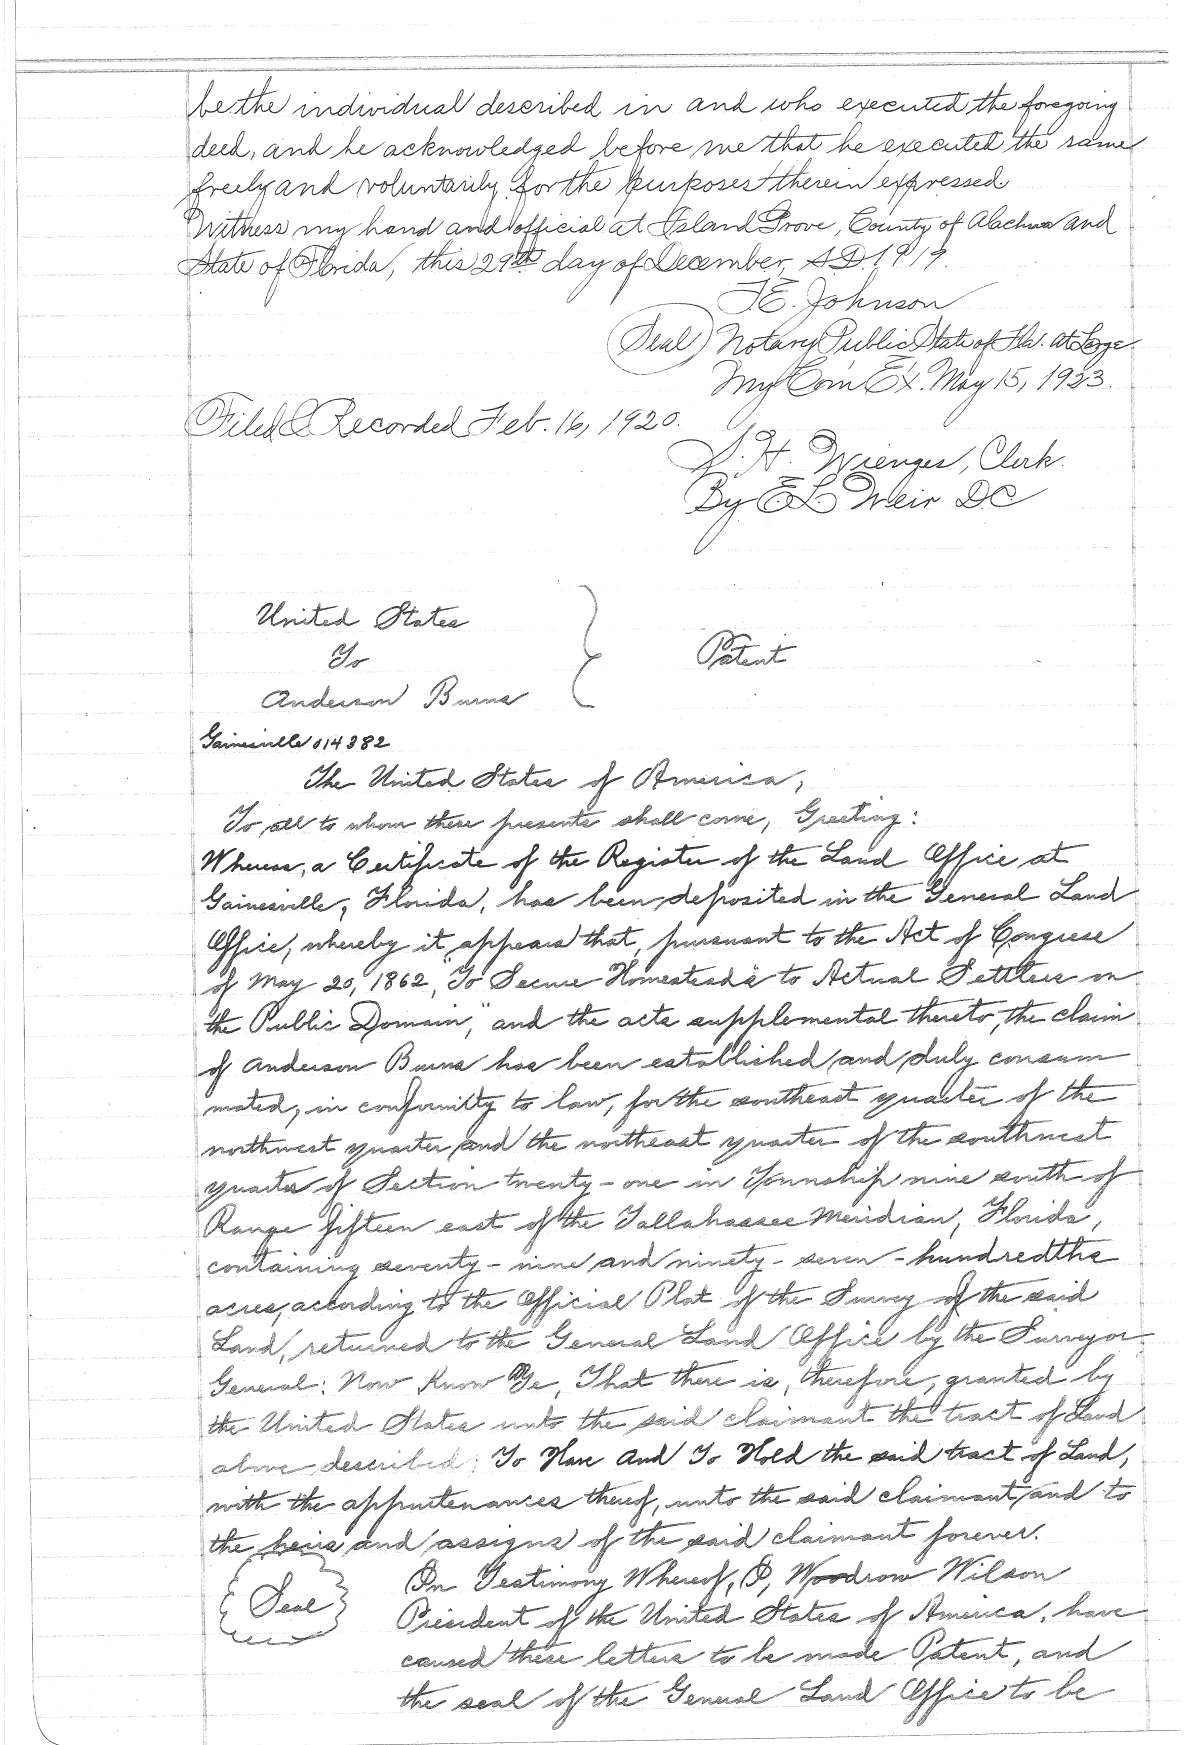 be the individual described in and who executed the foregoing
deed, and he acknowledged before me that he executed the same
freely and voluntarily for the purposes therein expressed.
Witness my hand and official at Island Grove, County of Alachua and
State of Florida, this 29th day of December, A.D. 1919.
T.E. Johnson
(Seal) Notary Public State of Fla. at Large
My Com Ex. May 15, 1923.
Filed & Recorded Feb. 16, 1920.
S. H. Wienges, Clerk.
By E L Weir D.C.
United States
To
Anderson Burns
Patent
Gainesville 014382
The United States of America,
To all to whom these presents shall come, Greeting:
Whereas, a Certificate of the Register of the Land Office at
Gainesville, Florida, has been deposited in the General Land
Office, whereby it appears that, pursuant to the Act of Congress
of May 20, 1862, "To Secure Homesteads to Actual Settlers on
the Public Domain," and the acts supplemental thereto, the claim
of Anderson Burns has been established and duly consum
mated, in conformity to law, for the southeast quarter of the
northwest quarter and the northeast quarter of the southwest
quarter of Section twenty-one in Township nine south of
Range fifteen east of the Tallahassee Meridian, Florida,
containing seventy-nine and ninety-seven-hundredths
acres, according to the Official Plat of the Survey of the said
Land, returned to the General Land Office by the Surveyor-
General: Now Know Ye, That there is, therefore, granted by
the United States unto the said claimant the tract of Land
above described; To Have And To Hold the said tract of Land,
with the appurtenances thereof, unto the said claimant and to
the heirs and assigns of the said claimant forever.
Seal
In Testimony Whereof, I, Woodrow Wilson
President of the United States of America, have
caused these letters to be made Patent, and
the seal of the General Land Office to be